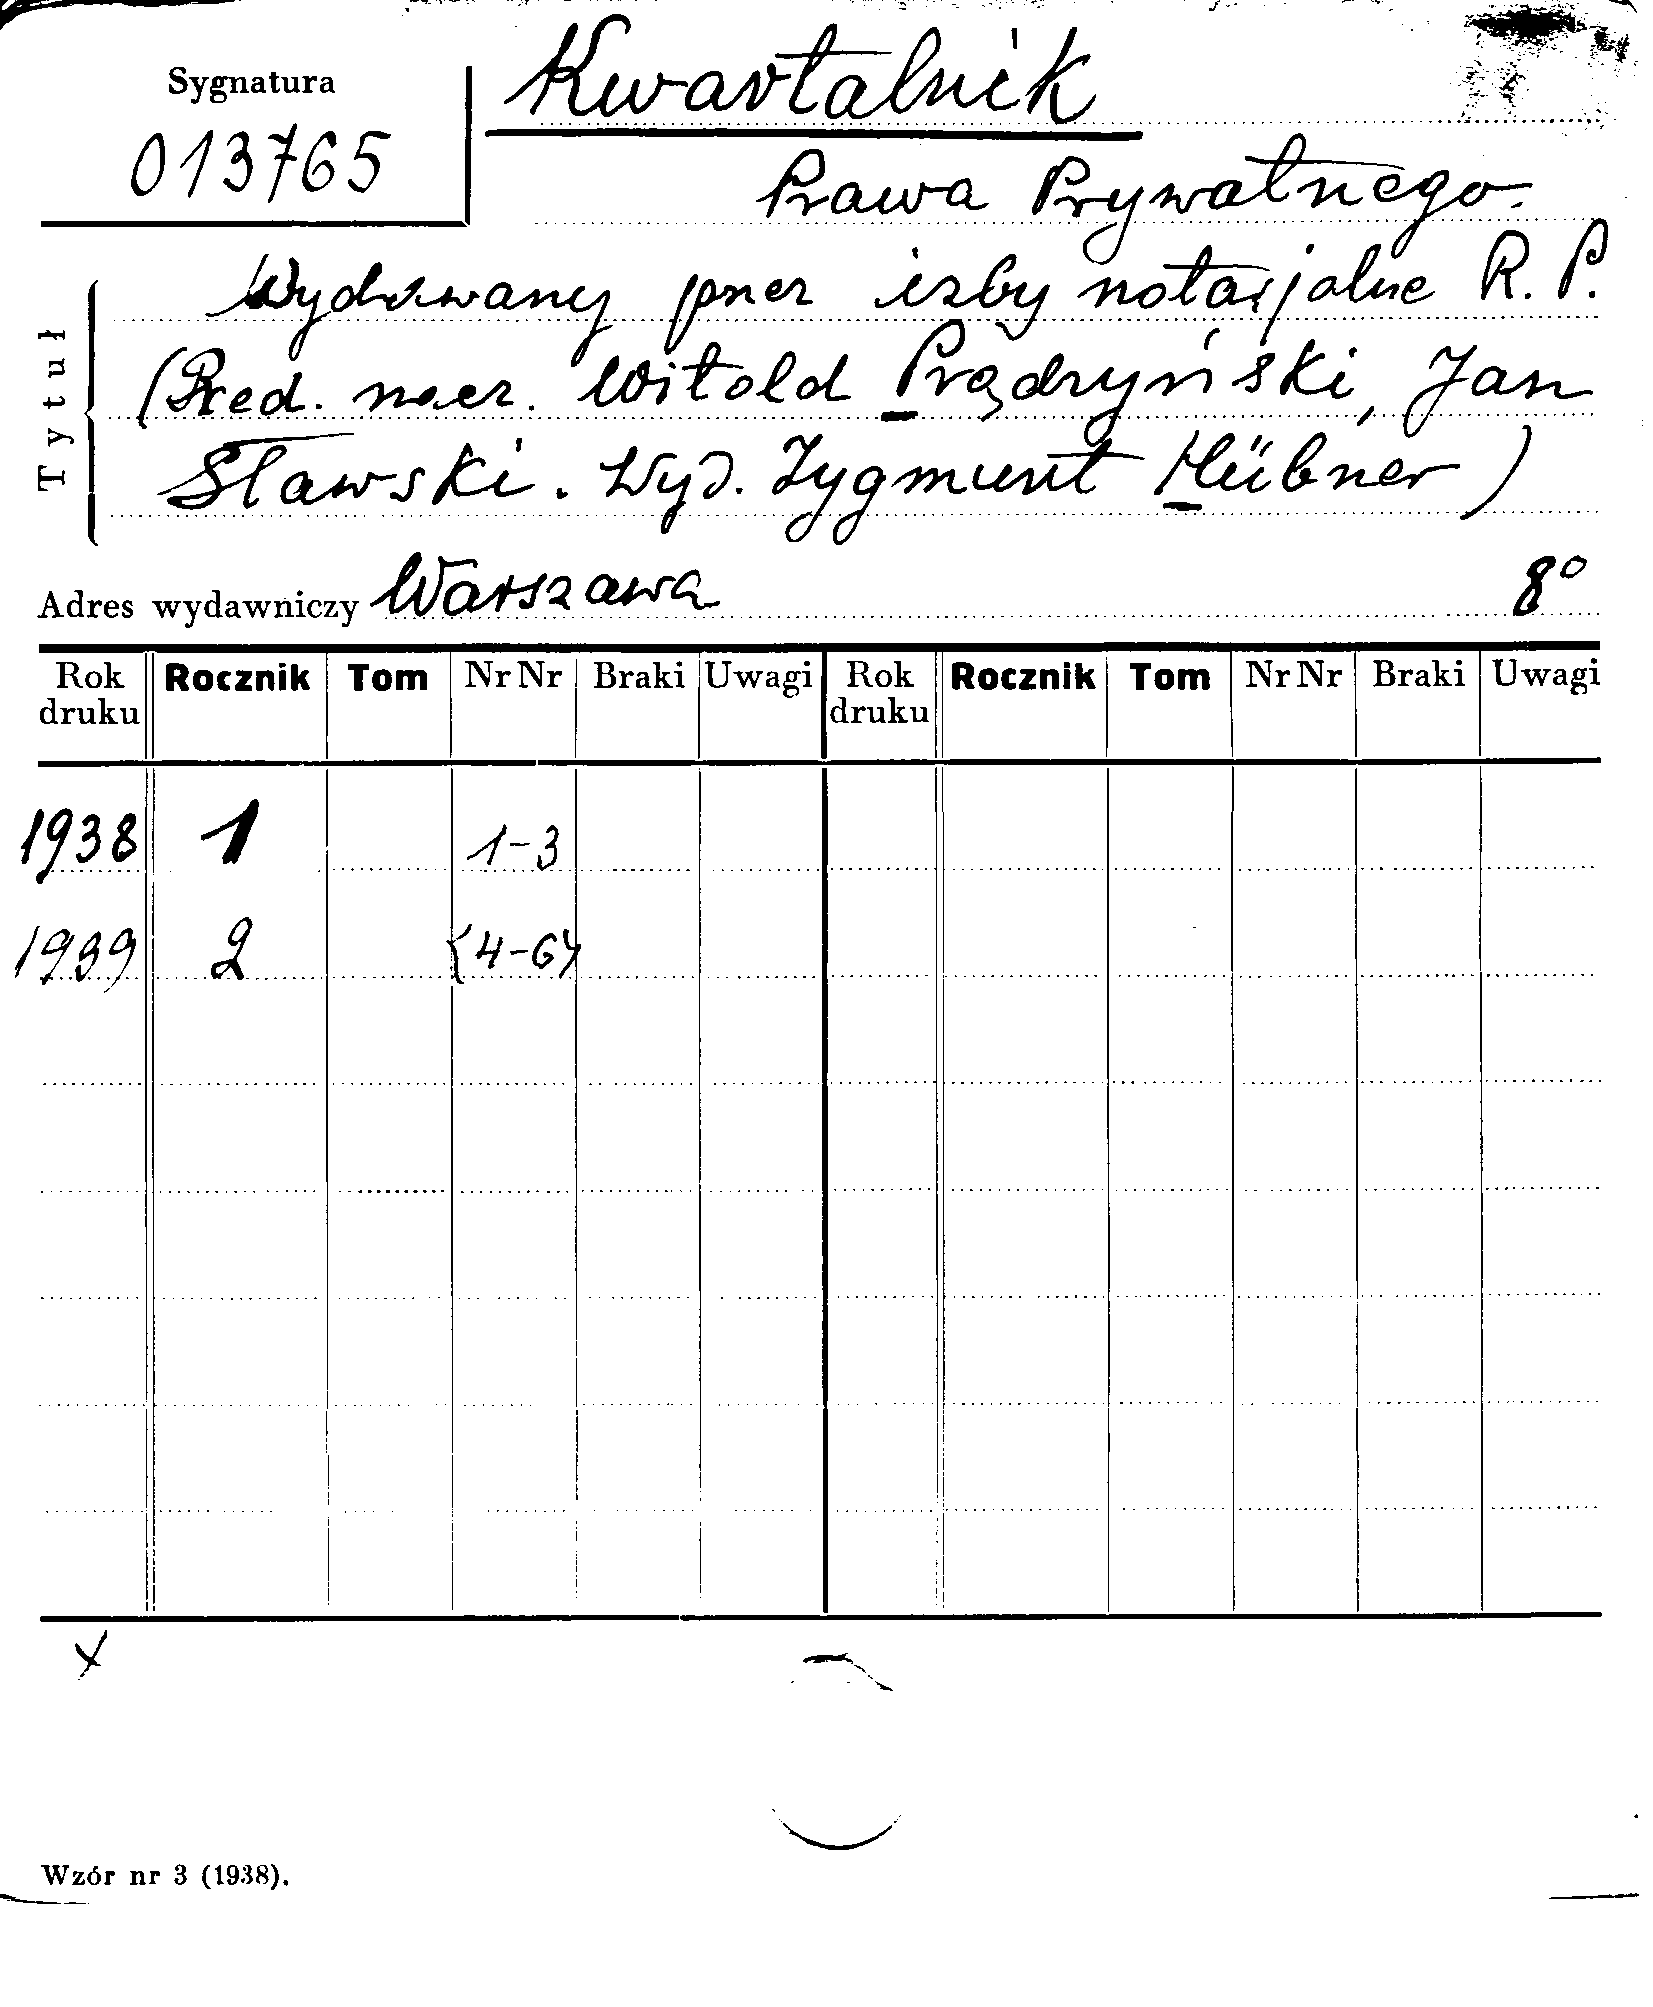 Sygnatura
013765
Kwartalnik
Prawa Prywatnego.
Tytuł
Wydawany przez izby notarjalne R. P.
(Red. nacz. Witold Prądzyński, Jan
Sławski. Wyd. Zygmunt Hübner)
Adres wydawniczy Warszawa 8°
Rok druku Rocznik Tom Nr Nr Braki Uwagi Rok druku Rocznik Tom Nr Nr Braki Uwagi
1938 1 1-3
1939 2 {4-6}
x
Wzór nr 3 (1938).